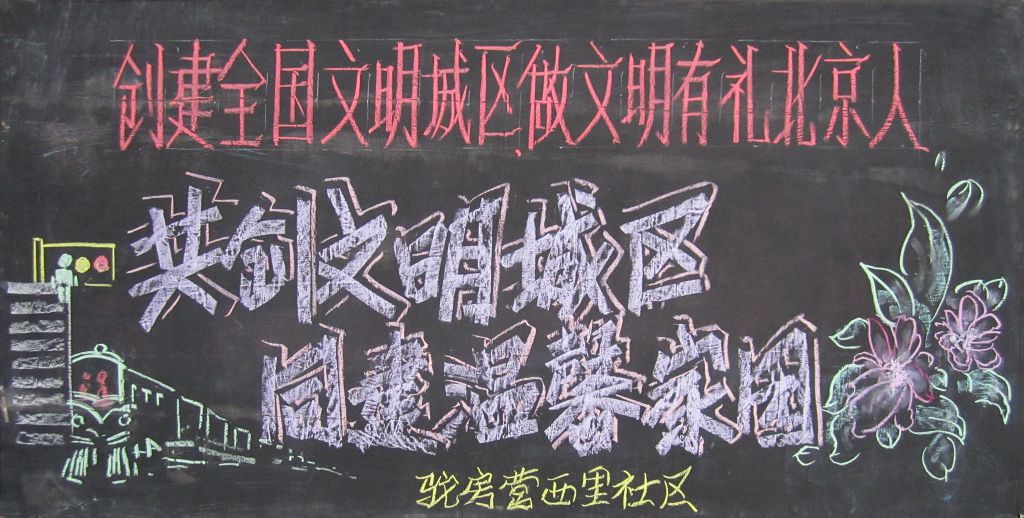 创建全国文明城区,做文明有礼北京人
共创文明城区
同建温馨家园
驼房营西里社区